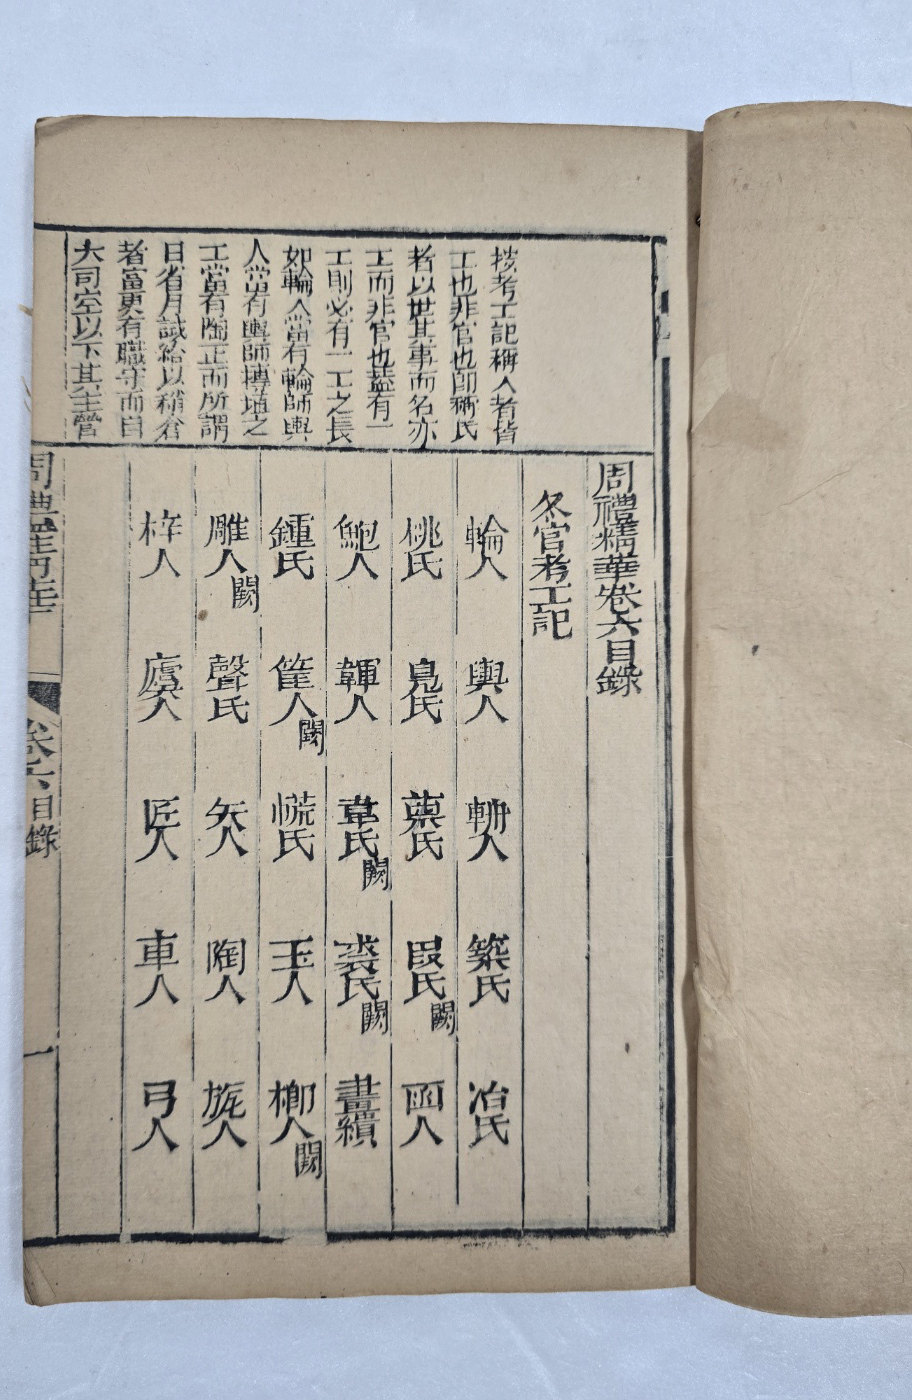 按考工記稱人者皆
工也非官也卽稱氏
者以世其事而名亦
工而非官也葢有一
工則必有一工之長
如輪人當有輪師輿
人當有輿師摶埴之
工當有陶正而所謂
日省月試給以稍倉
者當更有職守而自
大司空以下其主管
周禮精華卷六目錄
冬官考工記
輪人 輿人 輈人 築氏 冶氏
桃氏 鳧氏 㮚氏 段氏闕 函人
鮑人 韗人 韋氏闕 裘氏闕 畫繢
鍾氏 筐人闕 㡛氏 玉人 楖人闕
雕人闕 磬氏 矢人 陶人 旊人
梓人 廬人 匠人 車人 弓人
周禮精華 卷六目錄 一